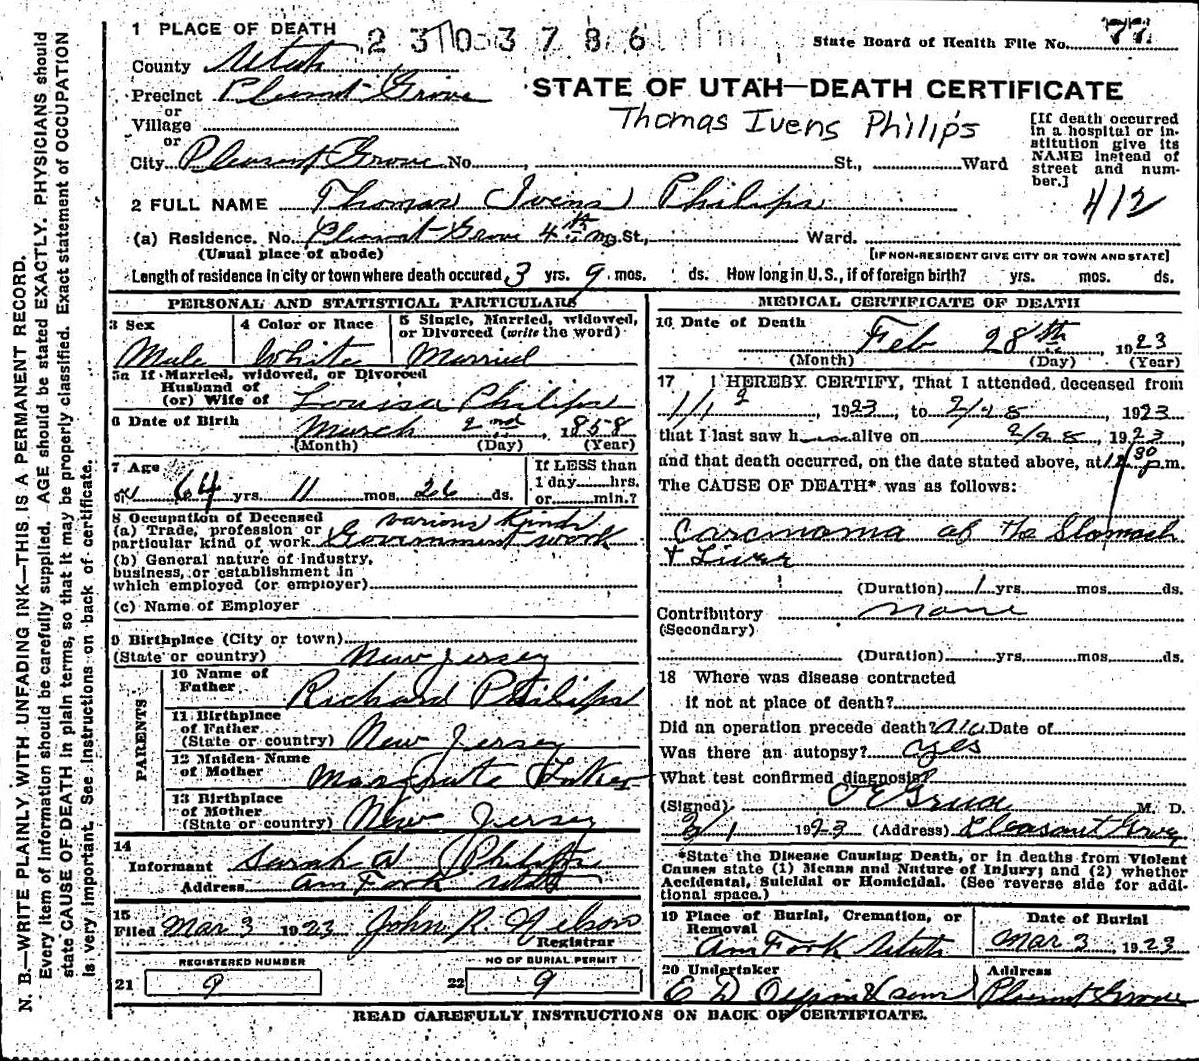 1 PLACE OF DEATH 2303786
State Board of Health File No. 77
County Utah
STATE OF UTAH—DEATH CERTIFICATE
Precinct Pleasant Grove
Thomas Ivens Philips
or
Village
or
City Pleasant Grove No. , St., Ward
[If death occurred in a hospital or institution give its NAME instead of street and number.]
412
2 FULL NAME Thomas Ivens Philips
(a) Residence. No. Pleasant Grove 4th St., Ward.
(Usual place of abode) [IF NON-RESIDENT GIVE CITY OR TOWN AND STATE]
Length of residence in city or town where death occured 3 yrs. 9 mos. ds. How long in U. S., if of foreign birth? yrs. mos. ds.
PERSONAL AND STATISTICAL PARTICULARS
3 Sex
Male
4 Color or Race
White
5 Single, Married, widowed, or Divorced (write the word)
Married
5a If Married, widowed, or Divorced
Husband of
(or) Wife of Louisa Philips
6 Date of Birth March 2nd, 1858
(Month) (Day) (Year)
7 Age
64 yrs. 11 mos. 26 ds.
If LESS than
1 day hrs.
or min.?
8 Occupation of Deceased
(a) Trade, profession or
particular kind of work various kinds Government work
(b) General nature of industry,
business, or establishment in
which employed (or employer)
(c) Name of Employer
9 Birthplace (City or town)
(State or country) New Jersey
PARENTS
10 Name of
Father Richard Philips
11 Birthplace
of Father
(State or country) New Jersey
12 Maiden Name
of Mother
13 Birthplace
of Mother
(State or country) New Jersey
14
Informant Sarah A Philips
Address Am Fork Utah
15
Filed Mar 3 1923 John R. Nelson
Registrar
REGISTERED NUMBER
21 9
NO OF BURIAL PERMIT
22 9
MEDICAL CERTIFICATE OF DEATH
16 Date of Death
Feb 28th 1923
(Month) (Day) (Year)
17 I HEREBY CERTIFY, That I attended deceased from
, 1923, to 2/28, 1923
that I last saw him alive on 2/28, 1923,
and that death occurred, on the date stated above, at 12 30 p.m.
The CAUSE OF DEATH* was as follows:
Carcinoma of the Stomach
+ Liver
(Duration) 1 yrs. mos. ds.
Contributory None
(Secondary)
(Duration) yrs. mos. ds.
18 Where was disease contracted
if not at place of death?
Did an operation precede death? No Date of
Was there an autopsy? yes
What test confirmed diagnosis?
(Signed) O E Grua M. D.
3/1 1923 (Address) Pleasant Grove
*State the Disease Causing Death, or in deaths from Violent
Causes state (1) Means and Nature of Injury; and (2) whether
Accidental, Suicidal or Homicidal. (See reverse side for addi-
tional space.)
19 Place of Burial, Cremation, or
Removal
Am Fork Utah
Date of Burial
Mar 3 1923
20 Undertaker
E D
Address
Pleasant Grove
READ CAREFULLY INSTRUCTIONS ON BACK OF CERTIFICATE.
N. B.—WRITE PLAINLY WITH UNFADING INK—THIS IS A PERMANENT RECORD.
Every item of information should be carefully supplied. AGE should be stated EXACTLY. PHYSICIANS should
state CAUSE OF DEATH in plain terms, so that it may be properly classified. Exact statement of OCCUPATION
is very important. See instructions on back of certificate.